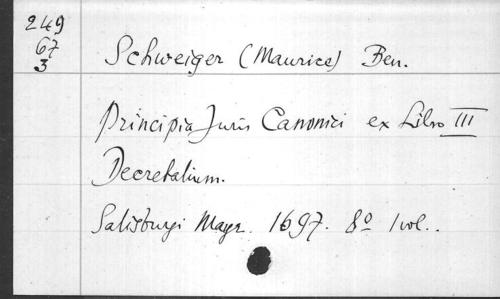 249
67
3
Schweiger (Maurice) Ben.
Principia Juris Canonici ex Libro III
Decretalium.
Salisburgi Mayr. 1697. 8º 1 vol..